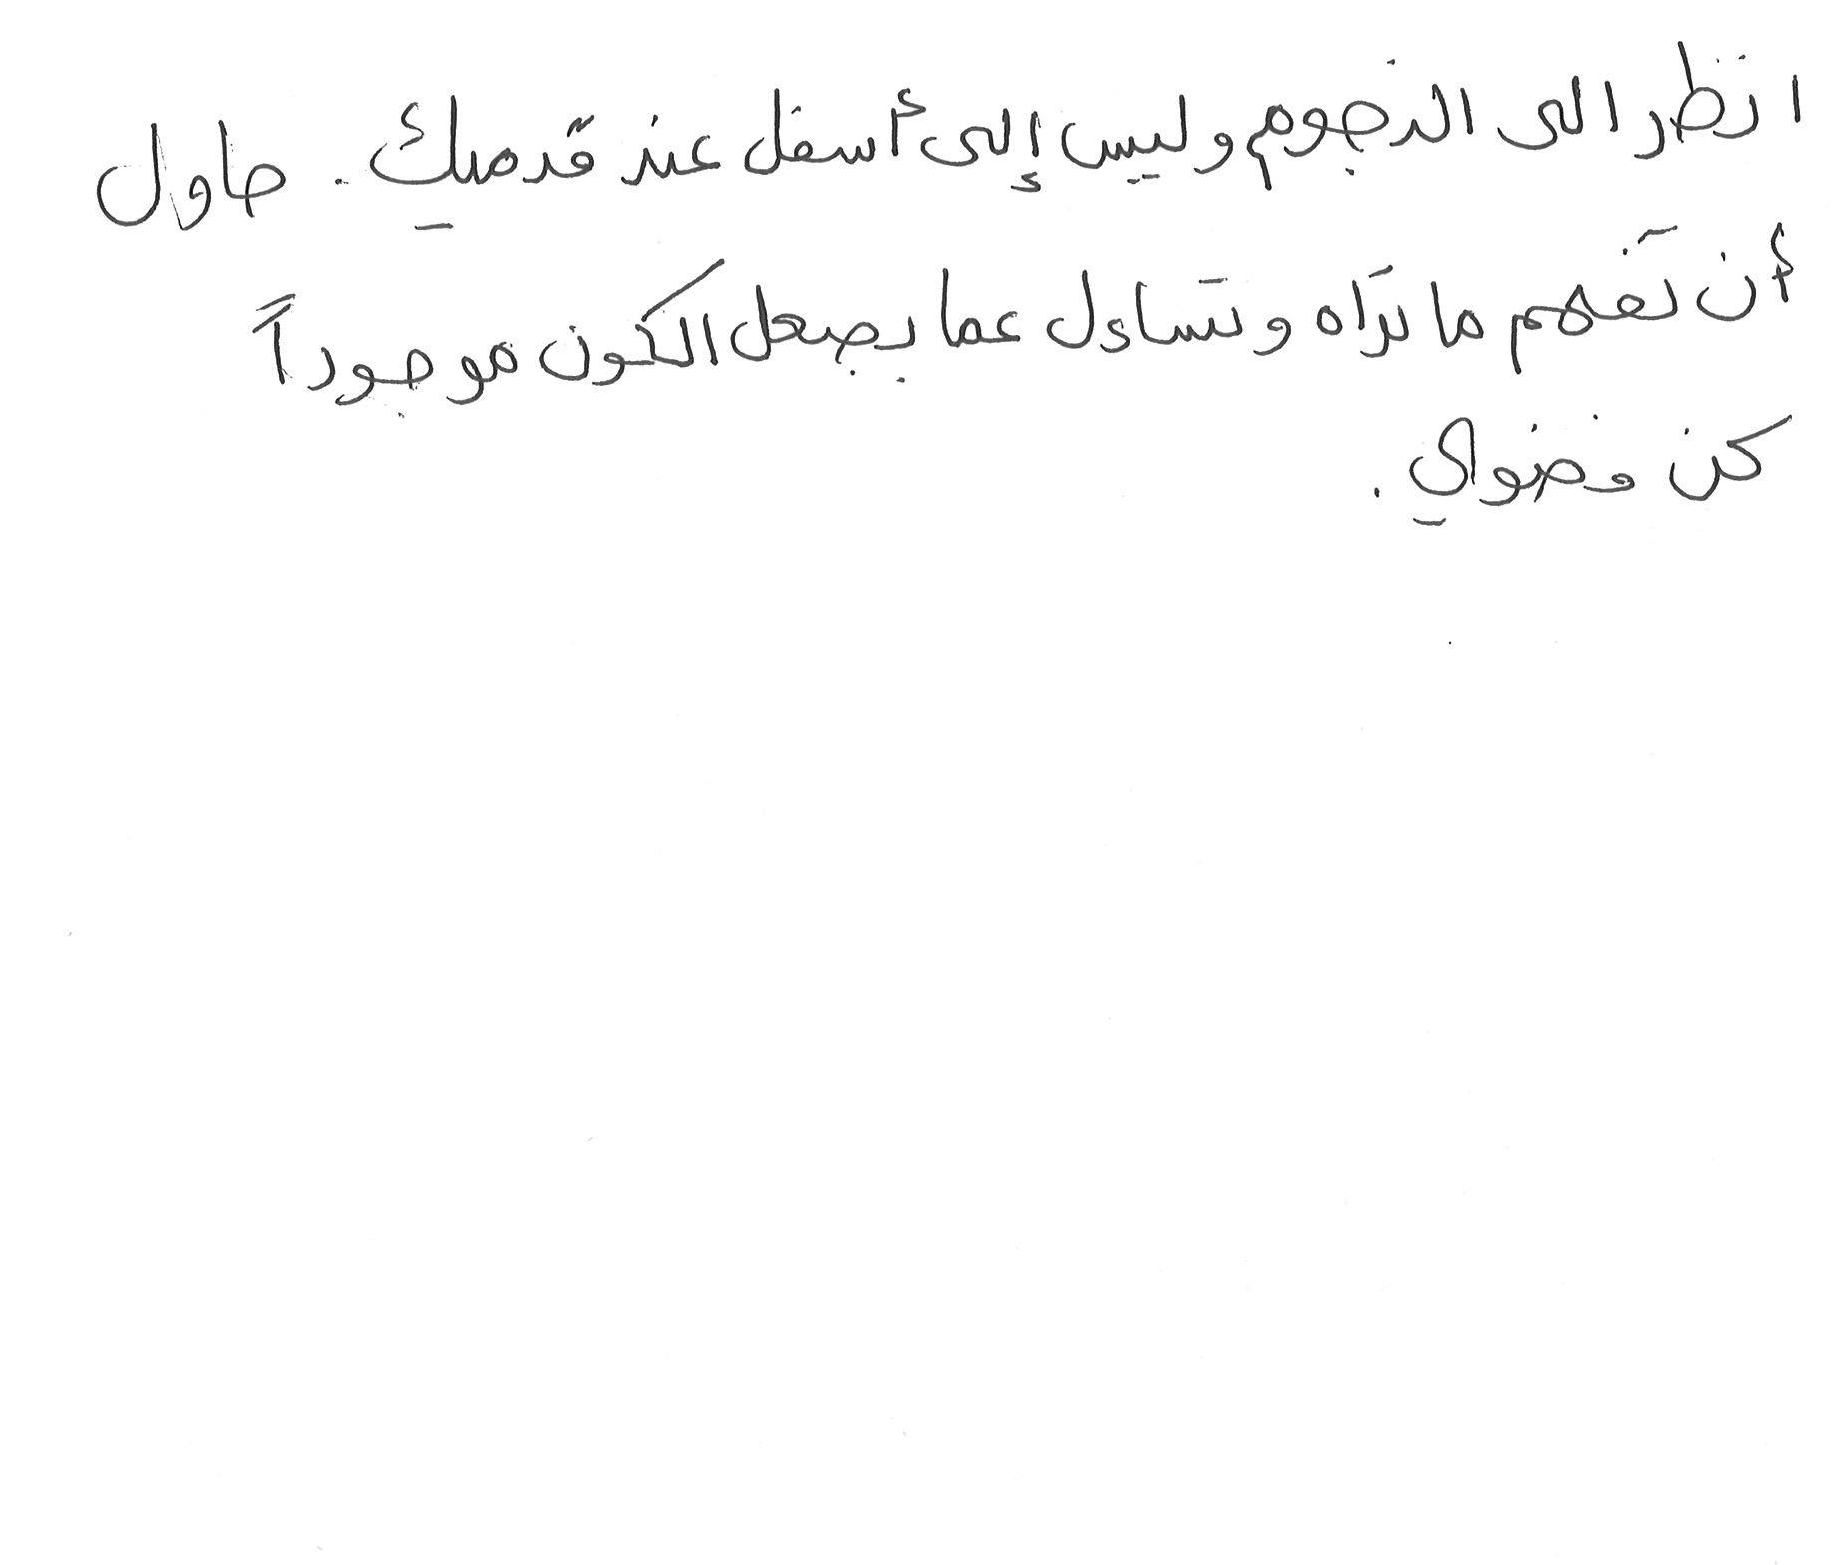 انظر الى النجوم وليس إلى أسفل عند قدميك. حاول
أن تفهم ما تراه وتتساءل عما يجعل الكون موجوداً
كن فضولي.